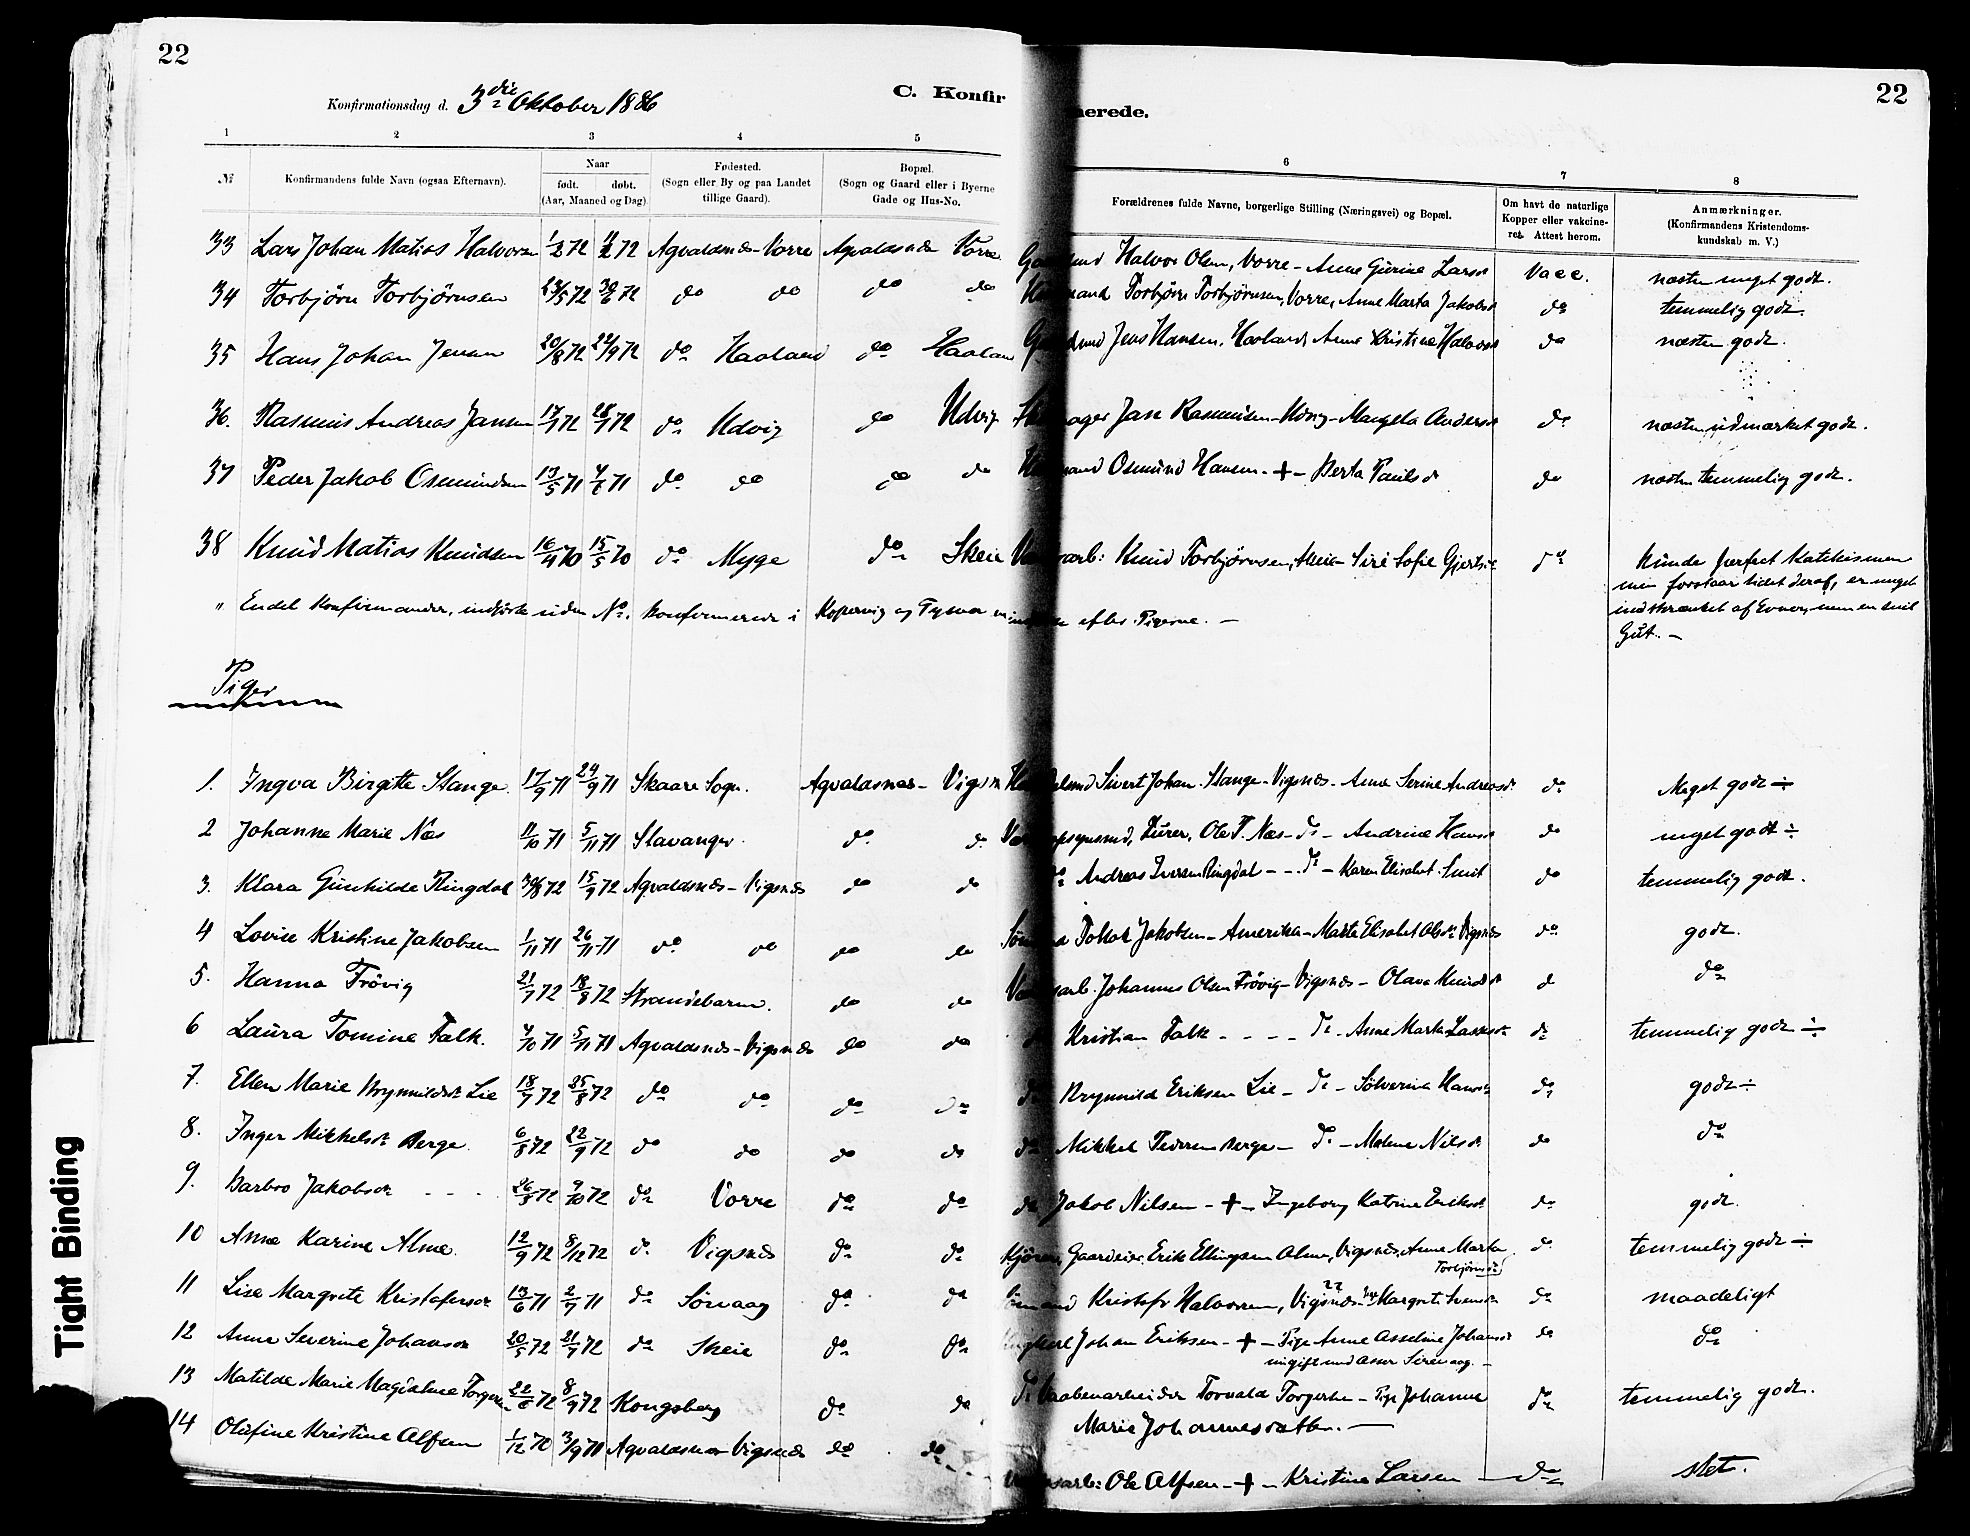 22
Konfirmationsdag d. 3die Oktober 1886
C. Konfir
merede.
22
1 2 3 4 5 6 7 8
№ Konfirmandens fulde Navn (ogsaa Efternavn).
Naar
født. døbt.
(Aar, Maaned og Dag)
Fødested.
(Sogn eller By og paa Landet
tillige Gaard).
Bopæl.
(Sogn og Gaard eller i Byerne
Gade og Hus-No.
Forældrenes fulde Navne, borgerlige Stilling (Næringsvei) og Bopæl.
Om havt de naturlige
Kopper eller vakcine-
ret. Attest herom.
Anmærkninger.
(Konfirmandens Kristendoms-
kundskab m. V.)
33 Lars Johan Matias Halvorsen Agvaldsnæs - Vorre Agvaldsnæs Vorre Halvor Olsen, Vorre - Anne Gurine Larsdr Vacc. næsten meget godt.
34 Torbjörn Torbjörnsen do do do do Torbjörn Torbjörnsen, Vorre, Anne Marta Jakobsdr do temmelig godt.
35 Hans Johan Jensen 20/8 72 22/9 72 do Haaland do Haaland Jens Hansen, Haaland, Anne Kristine Halvorsdr do næsten godt.
36. Rasmus Andreas Jansen 17/7 72 28/7 72 do Udvig do Udvig Jan Rasmussen - Udvig - Margela Andersdr do næsten udmærket godt.
37 Peder Jakob Osmundsen 13/5 71 do do do do Osmund Hansen - + - Berta Paulsdr do næsten temmelig godt.
38 Knud Matias Knudsen 16/4 70 15/5 70 do Myge do Skeie Knud Torbjörnsen, Skeie - Siri Sofie Gjertsdr do Kunde perfect Katekismen
men forstaar lidet deraf, er meget
indskrænket af Evner, men en snil
Gut. -
" Endel Konfirmander, indförte uden No, konfirmerede i Kopervig og Tysvær efter Pigerne. -
Piger
1. Ingva Birgitte Stange 17/9 71 24/9 71 Skaare Sogn. Agvaldsnæs - Vigsn Sivert Johan Stange - Vigsnæs - Anne Serine Andreasdr do Meget godt ÷
2 Johanne Marie Næs 11/10 71 5/11 71 Stavanger. do do Ole T. Næs - do - Andrine Hansdr do meget godt ÷
3. Klara Gunhilde Ringdal 15/9 72 Agvaldsnæs - Vigsnæs do do do Andreas Iversen Ringdal - - do - Karen Elisabet Smit do temmelig godt.
4 Lovise Kristine Jakobsen 1/11 71 26/11 71 do do do do Tollak Jakobsen - Amerika - Marta Elisabet Olsdr Vigsnæs do godt.
5. Hanna Trövig 21/7 72 18/8 72 Strandebarm. do do Johannes Olsen Trövig - Vigsnæs - Olava Knudsdr do do
6 Laura Tomine Falk. 4/10 71 5/11 71 Agvaldsnæs - Vigsnæs do do do Kristian Falk - - - - do - Anne Marta Larsdr do temmelig godt ÷
7. Ellen Marie Brynnildsdr Lie 18/7 72 25/8 72 do do do do do Brynnild Eriksen Lie - do - Sölverina Hansdr do godt ÷
8. Inger Mikkelsdr Berge. 6/8 72 22/9 72 do do do do do Mikkel Pedersen Berge - do - Malene Nilsdr do do
9. Barbro Jakobsdr - - - 9/10 72 do Vorre do do do Jakob Nilsen - + - Ingeborg Katrine Eriksdr do godt.
10 Anna Karine Alme. 12/9 72 8/12 72 do Vigsnæs do do Erik Ellingsen Alme, Vigsnæs, Anne Marta
Torbjörnsdr do temmelig godt ÷
11 Lise Margrete Kristofersdr 13/6 71 2/7 71 do Sörvaag do do Kristofer Halvorsen, Vigsnæs - Margrete Svensdr do maadeligt
12 Anne Severine Johansdr 20/5 72 21/7 72 do Skeie do do Ungkarl Johan Eriksen - + - Pige Anne Asseline Johansdr do do
ungift med Asser Sirevaag. -
13 Matilde Marie Magdalene Torgersen 22/6 72 8/9 72 Kongsberg do do do Vaabenarbeider Torvald Torgersen - Pige Johanne do temmelig godt.
Marie Johannesdatter. -
14 Olufine Kristine Alfsen 1/12 70 3/9 71 Agvaldsnæs Vigsnæs do do arb: Ole Alfsen - + - Kristine Larsen - do slet.
Tight Binding